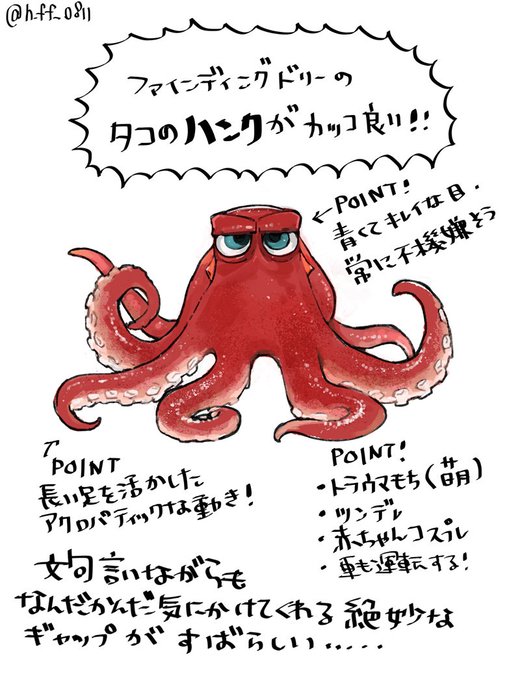 @h_ff_0811
ファインディングドリーの
タコのハンクがカッコ良い!!
←POINT!
青くてキレイな目・
常に不機嫌そう
POINT
長い足を活かした
アクロバティックな動き!
POINT!
・トラウマもち(萌)
・ツンデレ
・赤ちゃんコスプレ
・車も運転する!
文句言いながらも
なんだかんだ気にかけてくれる絶妙な
ギャップがすばらしい.....